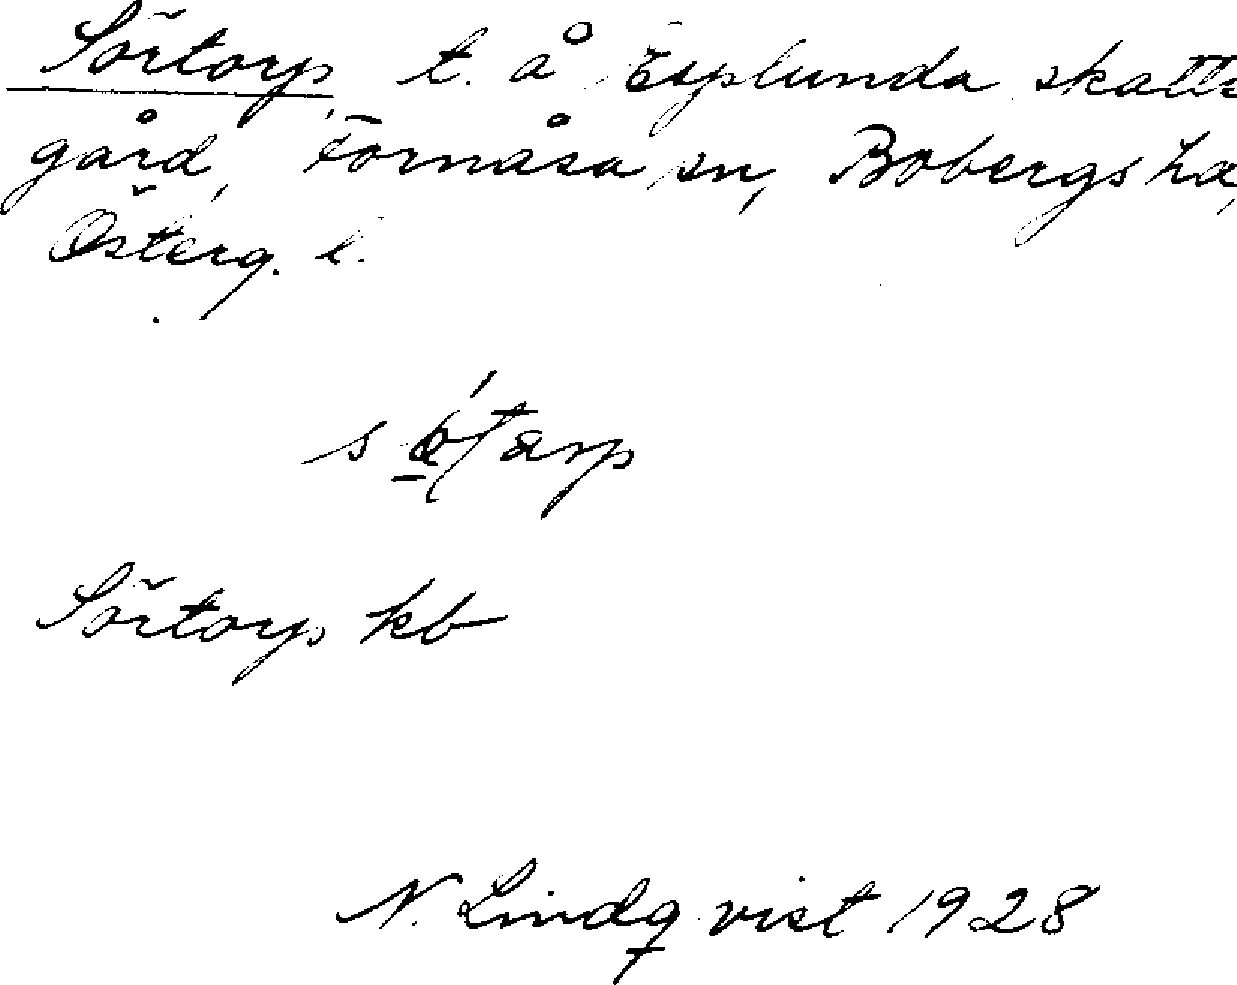 Sörtorp, t. å Esplunda skatte
gård, Fornåsa sn, Bobergs hd,
Österg. l.
Sörtorp kb
N. Lindqvist 1928